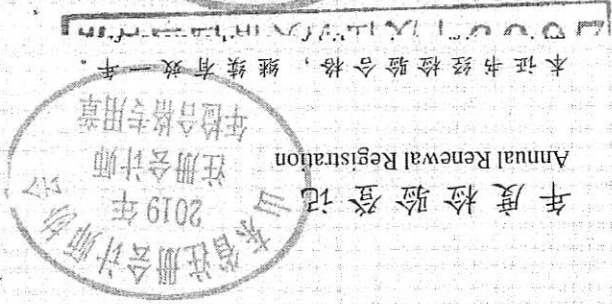 年度检验登记
Annual Renewal Registration
本证书经检验合格，继续有效一年。
山东省注册会计师协会
2019年
注册会计师
年检合格专用章